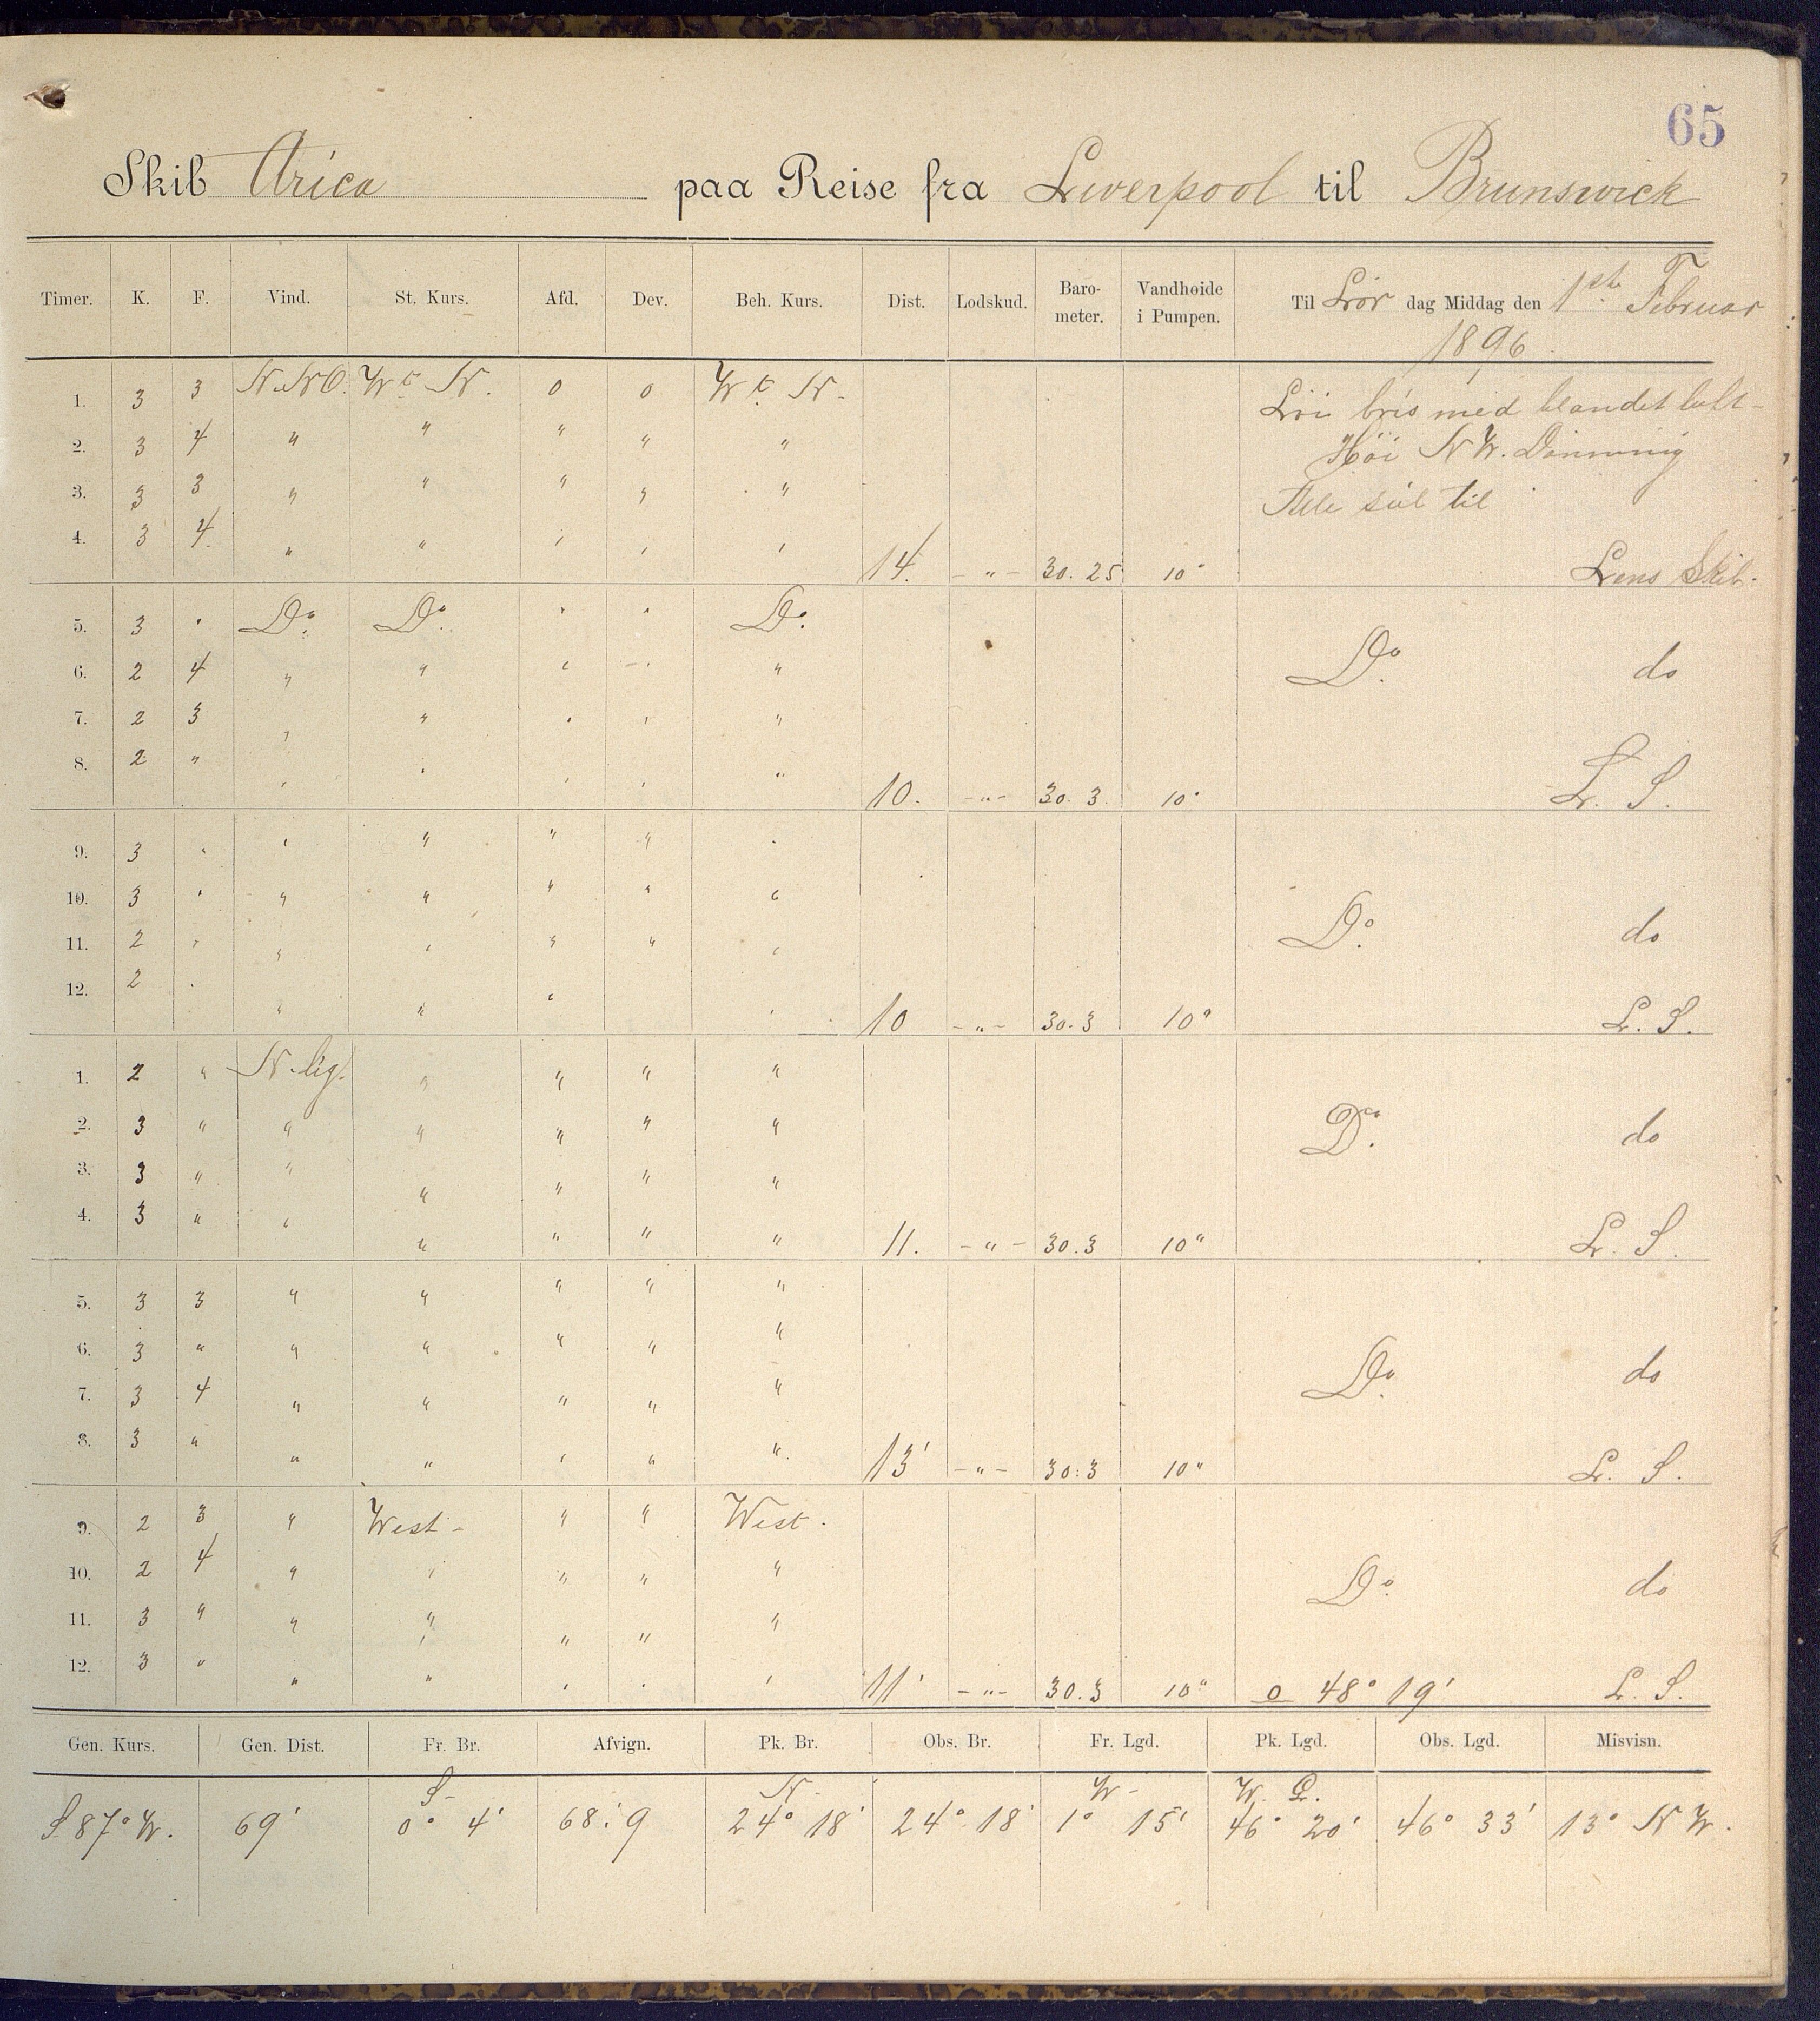 65
Skib Arica paa Reise fra Liverpool til Brunswick
Timer. K. F. Vind. St. Kurs. Afd. Dev. Beh. Kurs. Dist. Lodskud. Baro-meter. Vandhøide i Pumpen. Til Lør dag Middag den 1ste Februar 1896
1. 3 3 N.NO. W t. N. 0 0 W t. N. Löi bris med blandet luft
2. 3 4 " " " " " Höi N W. Dönning
3. 3 3 " " " " " Alle seil til
4. 3 4 " " " " " 14. - " - 30. 25 10" Lens Skib.
5. 3 " Do. Do. " " Do.
6. 2 4 " " " " " Do. do
7. 2 3 " " " " "
8. 2 " " " " " " 10. - " - 30. 3. 10" L. S.
9. 3 " " " " " "
10. 3 " " " " " " Do. do
11. 2 " " " " " "
12. 2 " " " " " 10 - " - 30. 3 10" L. S.
1. 2 " N. lig. " " " "
2. 3 " " " " " " Do. do
3. 3 " " " " " "
4. 3 " " " " " " 11. - " - 30. 3 10" L. S.
5. 3 3 " " " " "
6. 3 " " " " " " Do. do
7. 3 4 " " " " "
8. 3 " " " " " " 13' - " - 30. 3 10" L. S.
9. 2 3 " West " " West.
10. 2 4 " " " " " Do. do
11. 3 " " " " " "
12. 3 " " " " " " 11' - " - 30. 3 10" o 48° 19' L. S.
Gen. Kurs. Gen. Dist. Fr. Br. Afvign. Pk. Br. Obs. Br. Fr. Lgd. Pk. Lgd. Obs. Lgd. Misvisn.
S N W W. L.
S 87° W. 69' 0° 4' 68'.9 24° 18' 24° 18' 1° 15' 46° 20' 46° 33' 13° N W.